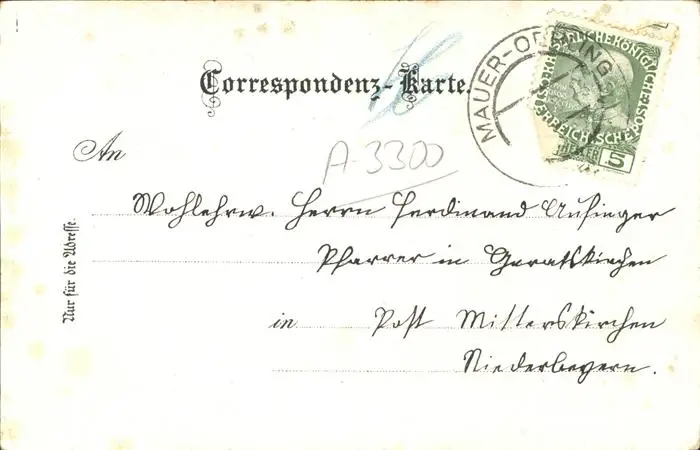 Correspondenz-Karte.
MAUER-OEHLING
KAISERLICHEKÖNIGLICHE
ÖSTERREICHISCHEPOST
5
A-3300
An
Wohlehrw. Herrn Ferdinand Aufinger
Pfarrer in Geratskirchen
in Post Mitterskirchen
Niederbayern.
Nur für die Adresse.